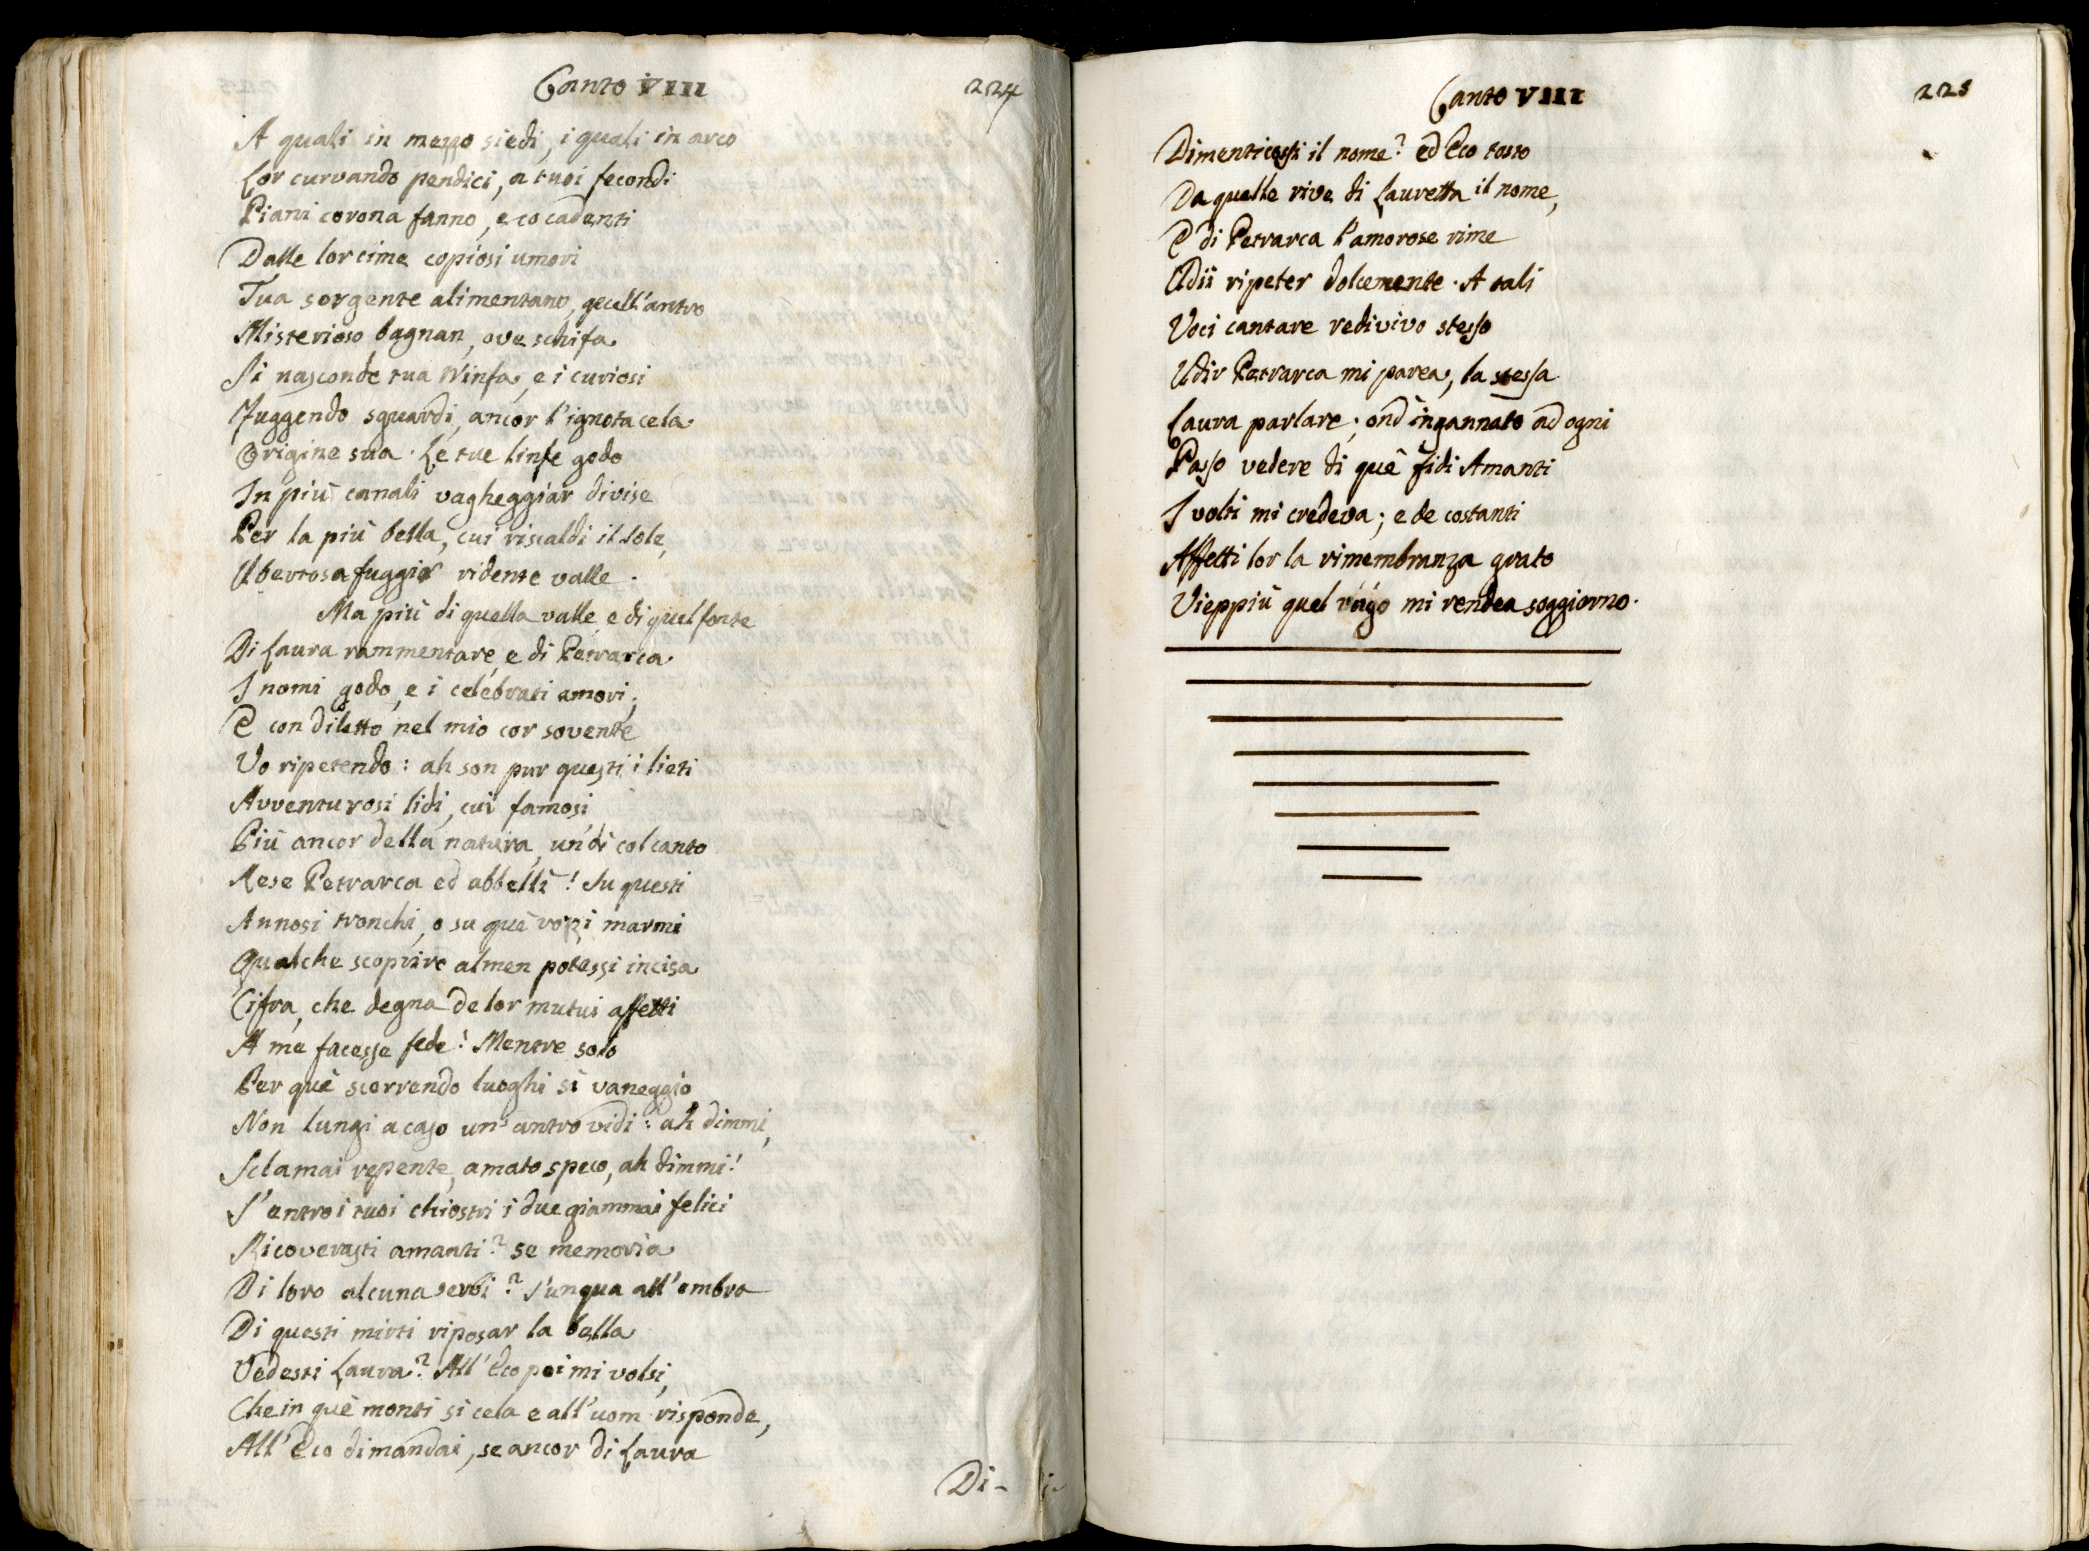 Canto VIII
224
A quali in mezzo siedi, i quali in arco
Lor curvando pendici, a tuoi fecondi
Piani corona fanno, e co cadenti
Dalle lor cime copiosi umori
Tua sorgente alimentano, quell'antro
Misterioso bagnan, ove schifa
Si nasconde tua Ninfa, e i curiosi
Fuggendo sguardi, ancor l'ignota cela
Origine sua. Le tue linfe godo
In più canali vagheggiar divise
Per la più bella, cui riscaldi il Sole,
Ubertosa fuggir ridente valle.
Ma più di quella valle, e di quel fonte
Di Laura rammentare, e di Petrarca
I nomi godo, e i celebrati amori;
E con diletto nel mio cor sovente
Vo ripetendo: ah son pur questi i lieti
Avventurosi lidi, cui famosi
Più ancor della natura, un dì col canto
Rese Petrarca ed abbellì! Su questi
Annosi tronchi, o su què rozzi marmi
Qualche scoprire almen potessi incisa
Cifra, che degna de lor mutui affetti
A me facesse fede! Mentre solo
Per què scorrendo luoghi sì vaneggio
Non lungi a caso un' antro vidi: ah dimmi,
Sclamai repente, amato speco, ah dimmi!
S'entro i tuoi chiostri i due giammai felici
Ricoverasti amanti? se memoria
Di loro alcuna serbi? S'unqua all'ombra
Di questi mirti riposar la bella
Vedesti Laura? All'Eco poi mi volsi,
Che in què monti si cela e all'uom risponde,
All'Eco dimandai, se ancor di Laura
Di-
Canto VIII
225
Dimenticossi il nome? ed Eco tosto
Da quelle rive di Lauretta il nome,
E di Petrarca l'amorose rime
Udii ripeter dolcemente. A tali
Voci cantare redivivo stesso
Udir Petrarca mi parea, la stessa
Laura parlare; ond'ingannato ad ogni
Passo vedere di què fidi Amanti
I volti mi credeva; e de costanti
Affetti lor la rimembranza grato
Vieppiù quel vago mi rendea soggiorno.